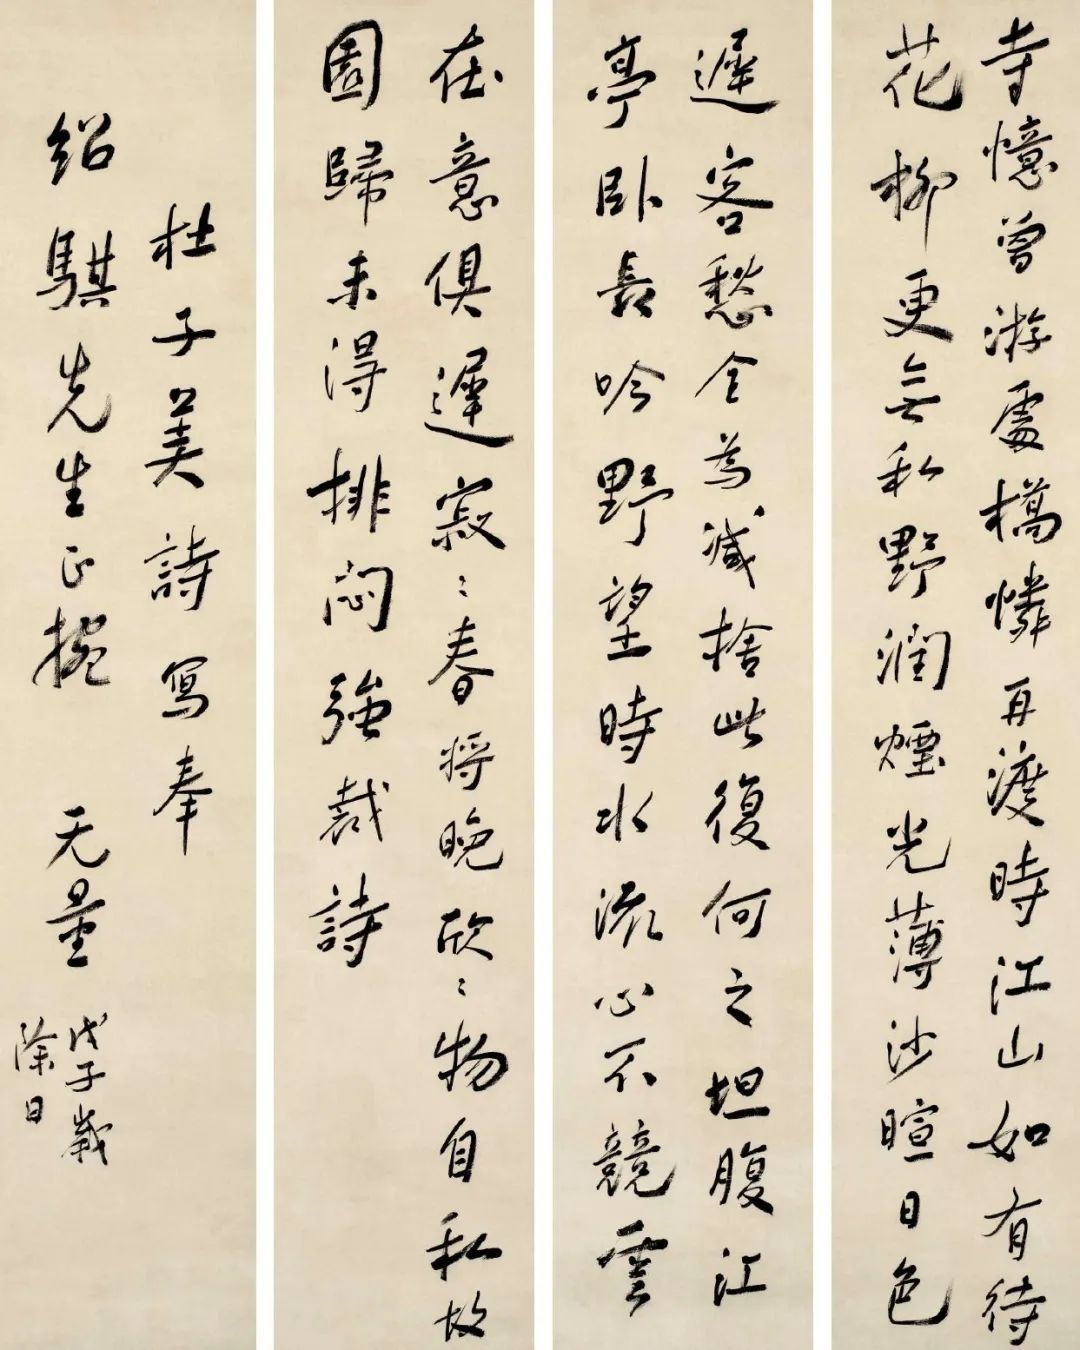 寺憶曾游處橋憐再渡時江山如有待
花柳更無私野潤煙光薄沙暄日色
遲客愁全為減捨此復何之坦腹江
亭卧長吟野望時水流心不競雲
在意俱遲寂〻春將晚欣〻物自私故
園歸未得排悶強裁詩
杜子美詩寫奉
紹騏先生正捥 无量
戊子歲
除日